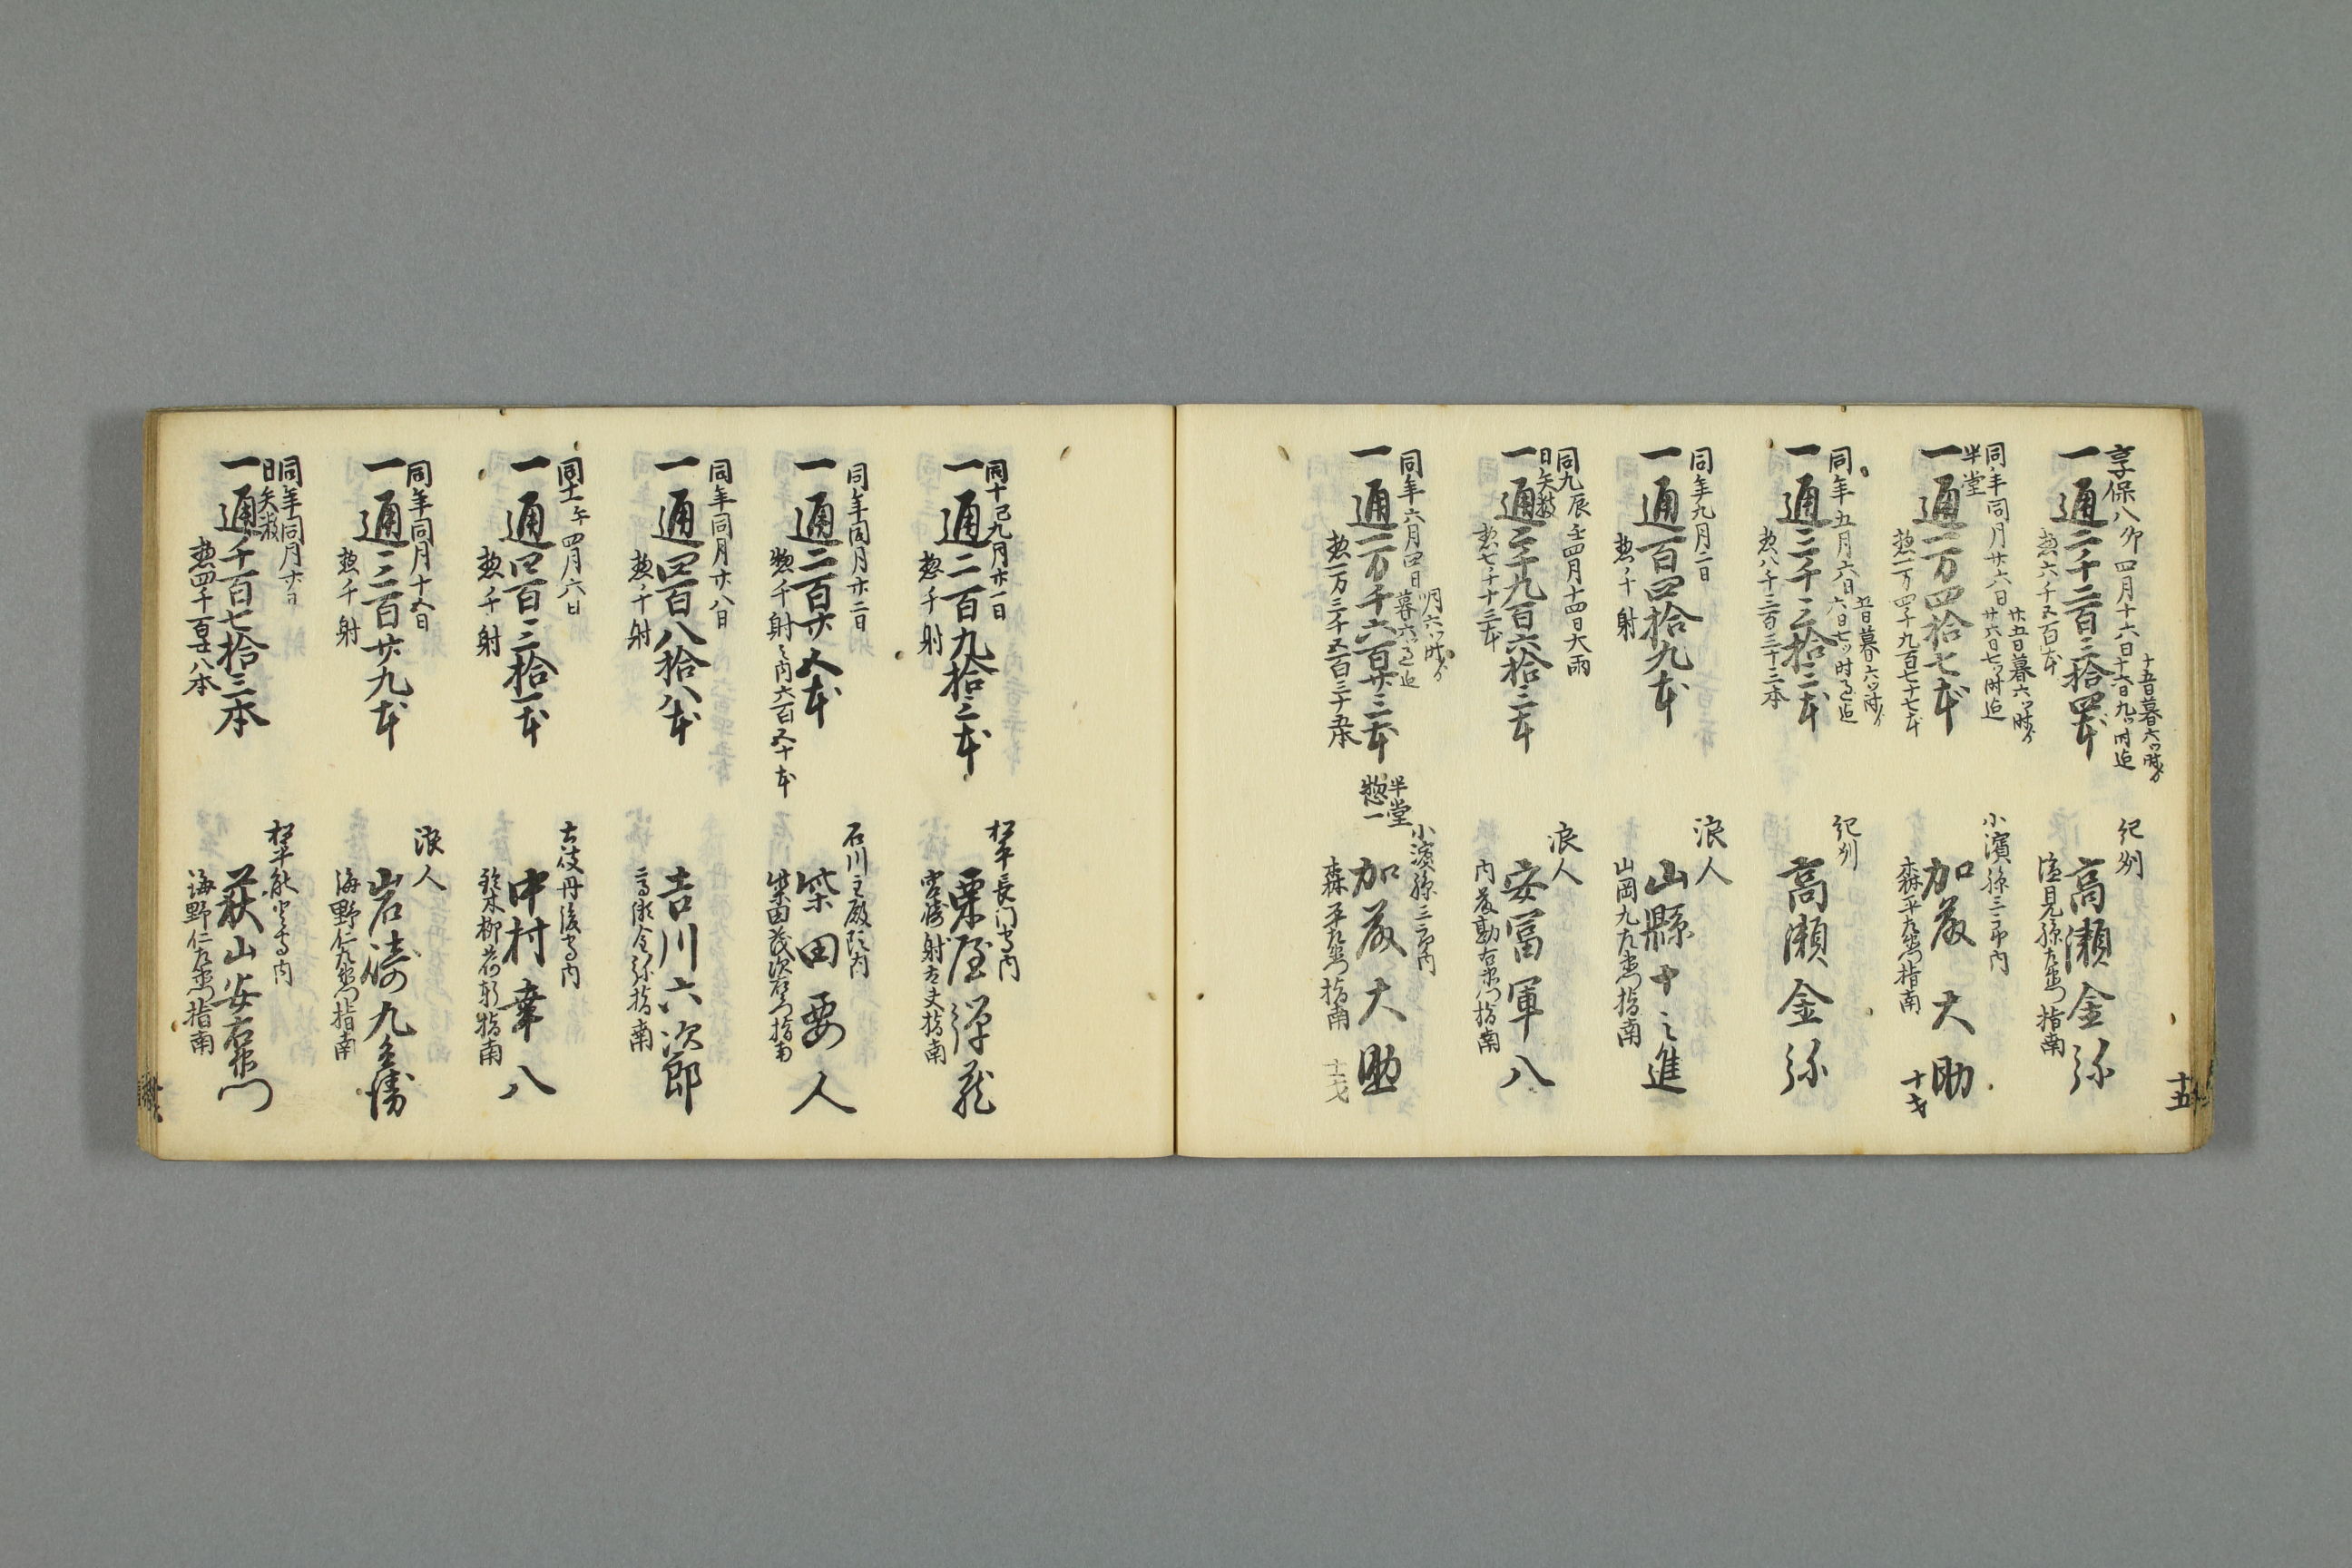 十五
享保八卯四月十六日
十五日暮六ツ時ゟ
十六日九ツ時迄
一通二千二百三拾四本
惣六千五百本
紀州
高瀬金弥
渥見孫左衛門指南
同年同月廿六日
廿五日暮六ツ時ゟ
廿六日七ツ时迄
半堂
一通一万四拾七本
惣一万四千九百七十七本
小濱孫三郎内
加藤大助
十才
森平左衛門指南
同年五月六日
五日暮六ツ時ゟ
六日七ツ时迄
一通三千三拾二本
惣八千三百三十二本
紀州
高瀬金弥
同年九月二日
一通百四拾九本
惣千射
浪人
山縣十之進
山岡九左衛門指南
同九辰壬四月十四日大雨
日矢数
一通二千九百六拾三本
惣七千十三本
浪人
安冨軍八
内藤勘右衛門指南
同年六月四日
暮六ツ迄
一通一万千六百廿二本
惣一万三千五百三十五本
半堂
惣一
小濱孫三郎内
加藤大助
森平左衛門指南
十一才
同十巳九月廿一日
一通二百九拾二本
惣千射
松平長门守内
粟屋弾蔵
射右丈指南
同年同月廿二日
一通二百廿五本
惣千射之内六百五十本
石川主殿头内
柴田要人
柴田茂次右衛門指南
同年同月廿八日
一通四百八拾八本
惣千射
吉川六次郎
指南
同十一午四月六日
一通四百三拾一本
惣千射
土岐丹後守内
中村幸八
鈴木柳右衛門指南
同年同月十五日
一通三百廿九本
惣千射
浪人
岩崎九兵衛
海野仁左衛門指南
同年同月廿日
日矢数
一通千百七拾三本
惣四千百廿八本
松平能登守内
萩山安右衛門
海野仁左衛門指南